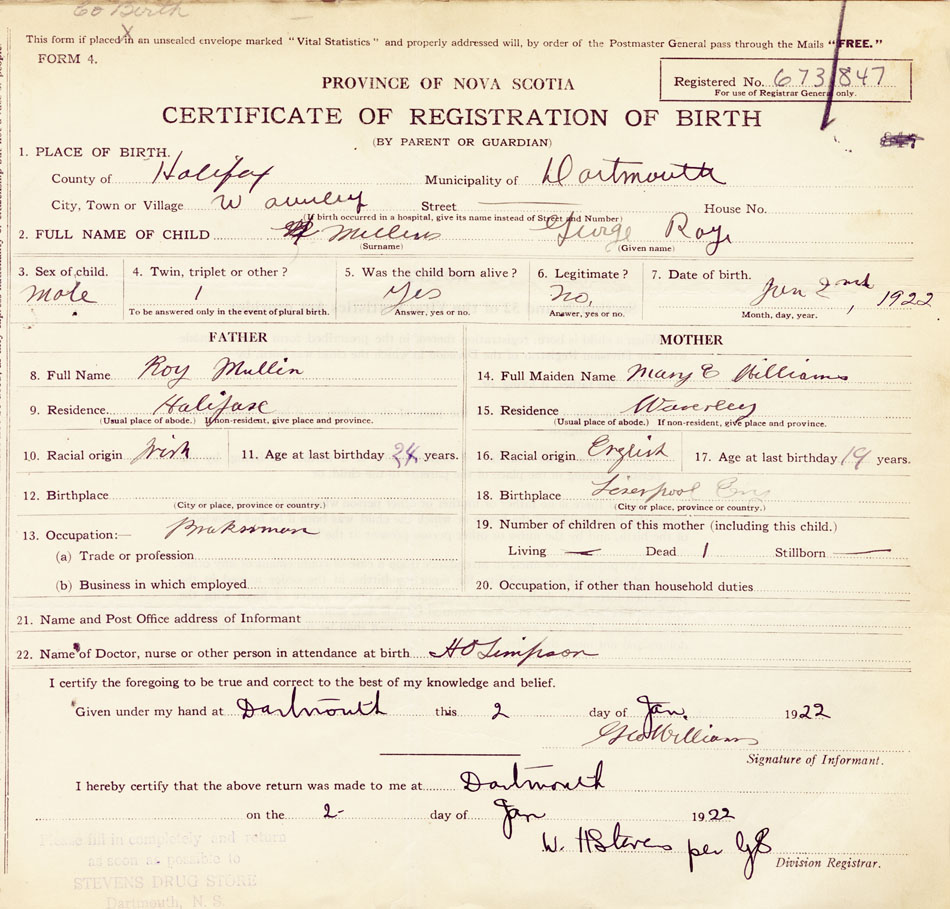 Co Birth
This form if placed in an unsealed envelope marked "Vital Statistics" and properly addressed will, by order of the Postmaster General pass through the Mails "FREE."
FORM 4.
PROVINCE OF NOVA SCOTIA
Registered No. 673847
For use of Registrar General only.
CERTIFICATE OF REGISTRATION OF BIRTH
(BY PARENT OR GUARDIAN)
847
1. PLACE OF BIRTH.
County of Halifax Municipality of Dartmouth
City, Town or Village Street House No.
(If birth occurred in a hospital, give its name instead of Street and Number)
2. FULL NAME OF CHILD Mullins George Roy
(Surname) (Given name)
3. Sex of child. 4. Twin, triplet or other? 5. Was the child born alive? 6. Legitimate? 7. Date of birth.
Male 1 Yes No. Jan 2nd, 1922
To be answered only in the event of plural birth. Answer, yes or no. Answer, yes or no. Month, day, year.
FATHER MOTHER
8. Full Name Roy Mullin 14. Full Maiden Name Mary E Williams
9. Residence. Halifax 15. Residence Waverley
(Usual place of abode.) If non-resident, give place and province. (Usual place of abode.) If non-resident, give place and province.
10. Racial origin Irish 11. Age at last birthday 24 years. 16. Racial origin English 17. Age at last birthday 19 years.
12. Birthplace 18. Birthplace Liverpool Eng
(City or place, province or country.) (City or place, province or country.)
13. Occupation:— Brakesman 19. Number of children of this mother (including this child.)
(a) Trade or profession Living — Dead 1 Stillborn —
(b) Business in which employed 20. Occupation, if other than household duties
21. Name and Post Office address of Informant
22. Name of Doctor, nurse or other person in attendance at birth H O Simpson
I certify the foregoing to be true and correct to the best of my knowledge and belief.
Given under my hand at Dartmouth this 2 day of Jan. 1922
Geo Williams
Signature of Informant.
I hereby certify that the above return was made to me at Dartmouth
on the 2- day of Jan 1922
W. H Stevens per GS
Division Registrar.
Please fill in completely and return
as soon as possible to
STEVENS DRUG STORE
Dartmouth, N. S.